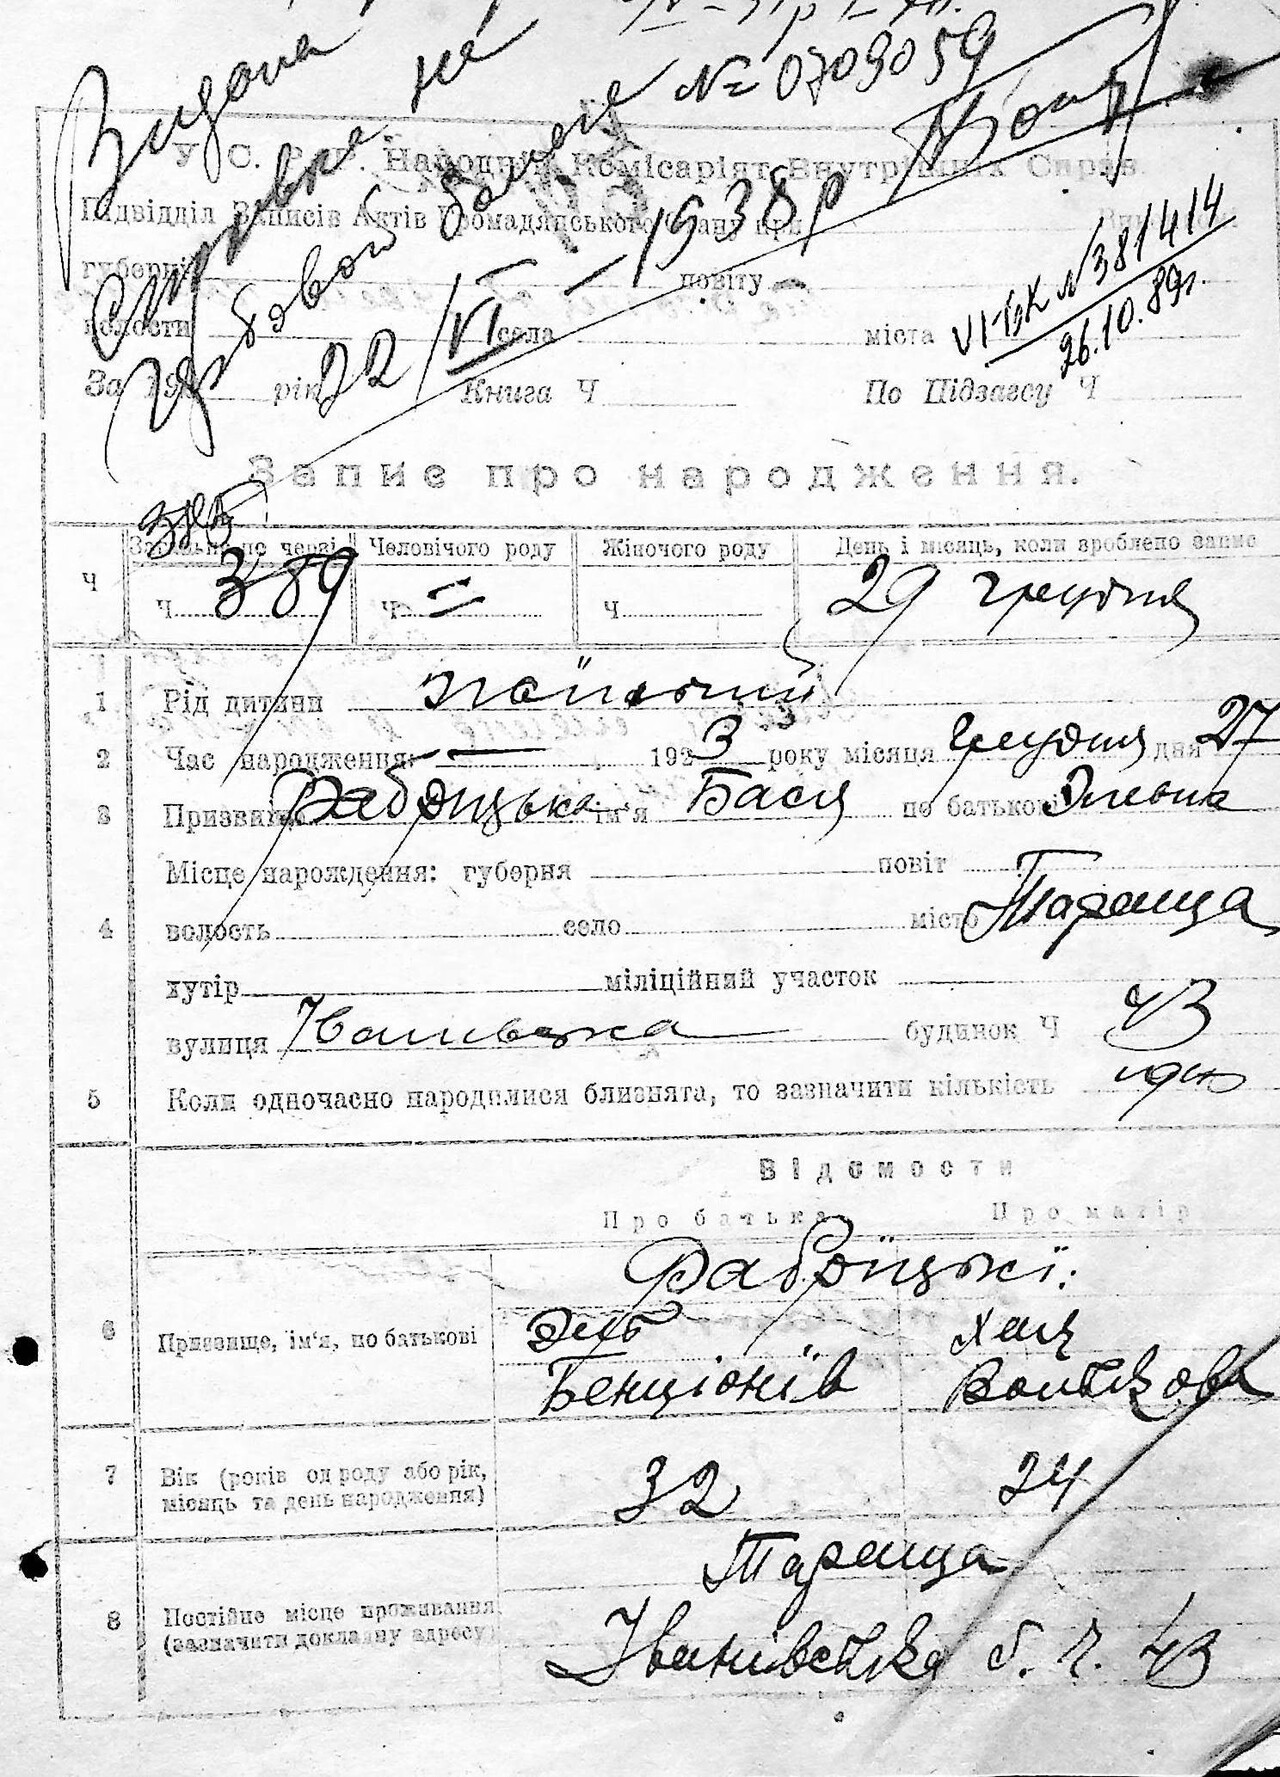 Видана
справка на
гербовой бумаге № 0709059
22/VI – 1938р
VI-БК №381414
26.10.89г.
У. С. Р. Р. Народній Комісаріят Внутрішніх Справ.
Підвідділ Записів Актів Громадянського Стану при
губерні повіту
волости села міста
За 192 рік Книга Ч По Підзагсу Ч
Запис про народження.
385
Загальне по черзі Чоловічого роду Жіночого роду День і місяць, коли зроблено запис
Ч Ч 389 Ч = Ч 29 грудня
1 Рід дитини жіночий
2 Час народження: — 1923 року місяця грудня дня 27
3 Призвище Рабоицька ім'я Бася по батькові Эльевна
Місце нарождення: губерня повіт
4 волость село місто Тараща
хутір міліційний участок
вулиця Іванівська будинок Ч 43
5 Коли одночасно народилися близнята, то зазначити кількість одно
Відомости
Про батька Про матір
Рабоїцькі:
6 Призвище, ім'я, по батькові Эль Хая
Бенціонів Вольkова
7 Вік (років од роду або рік, місяць та день народження) 32 24
Тараща
8 Постійне місце проживання
(зазначити докладну адресу) Іванівська б. ч. 43